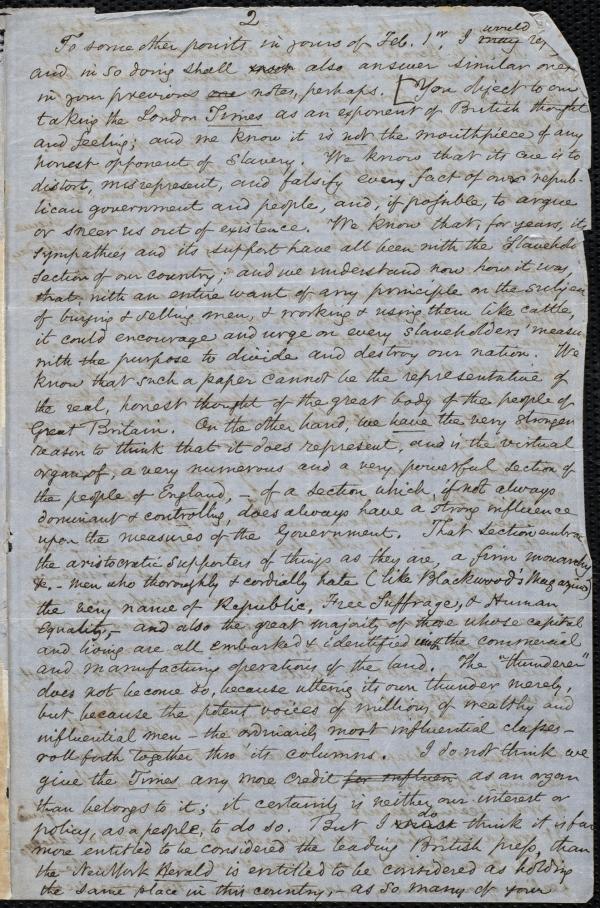 2
To some other points in yours of Feb. 1st, I would may rep
and in so doing shall also answer similar ones
in your previous one notes, perhaps. [You object to our
taking the London Times as an exponent of British thought
and feeling; and we know it is not the mouthpiece of any
honest opponent of Slavery. We know that its cue is to
distort, misrepresent, and falsify every fact of our repub-
lican government and people, and, if possible, to argue
or sneer us out of existence. We know that, for years, its
sympathies and its support have all been with the Slavehold
section of our country; and we understand now how it was,
that, with an entire want of any principle on the subject
of buying & selling men, & working & using them like cattle,
it could encourage and urge on every slaveholders' measu
with the purpose to divide and destroy our nation. We
know that such a paper cannot be the representative of
the real, honest thought of the great body of the people of
Great Britain. On the other hand, we have the very strongest
reason to think that it does represent, and is the virtual
organ of, a very numerous and a very powerful section of
the people of England, - of a section which, if not always
dominant & controlling, does always have a strong influence
upon the measures of the Government. That section embra
the aristocratic supporters of things as they are, a firm monarchy
&c. - men who thoroughly & cordially hate (like Blackwood's Magazine)
the very name of Republic, Free Suffrage, & Human
Equality, - and also the great majority of those whose capital
and living are all embarked & identified with the commercial
and manufacturing operations of the land. The "thunderer"
does not become so, because uttering its own thunder merely,
but because the potent voices of millions of wealthy and
influential men - the ordinarily most influential classes -
roll forth together thro' its columns. I do not think we
give the Times any more credit for influen as an organ
than belongs to it; it certainly is neither our interest or
policy, as a people, to do so. But I do think it is far
more entitled to be considered the leading British press, than
the New York Herald is entitled to be considered as holding
the same place in this country, - as so many of your